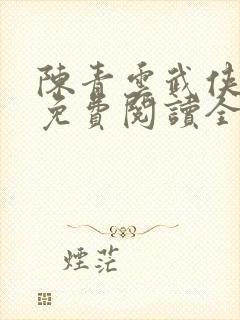 陳青雲武俠
免費閱讀全
煙茫